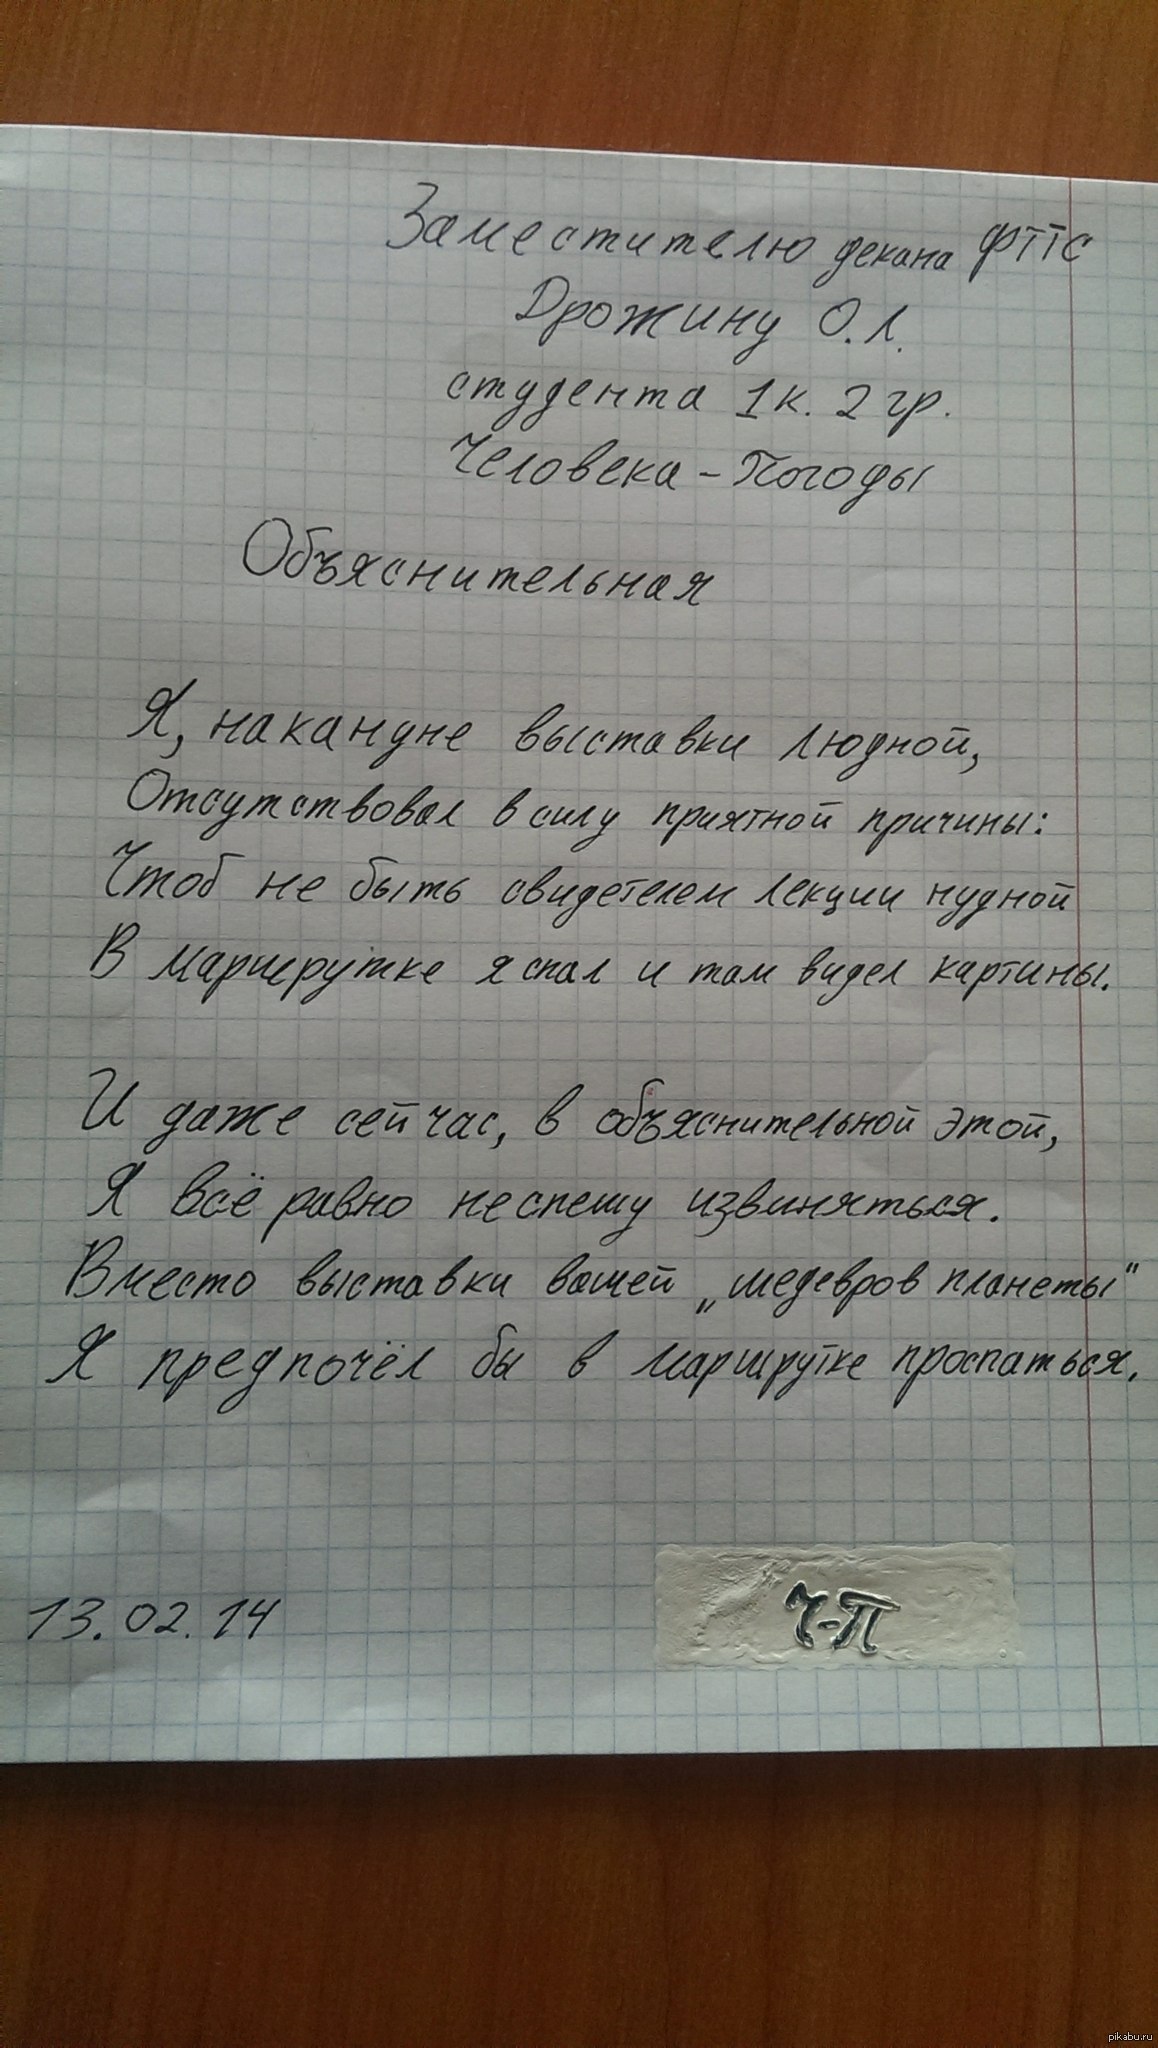 Заместителю декана ФТТС
Дрожину О.Л.
студента 1к. 2 гр.
Человека-Погоды
Объяснительная
Я, накануне выставки людной,
Отсутствовал в силу приятной причины:
Чтоб не быть свидетелем лекции нудной
В маршрутке я спал и там видел картины.
И даже сейчас, в объяснительной этой,
Я всё равно не спешу извиняться.
Вместо выставки вашей „шедевров планеты"
Я предпочёл бы в маршрутке проспаться.
13.02.14
Ч-П
pikabu.ru